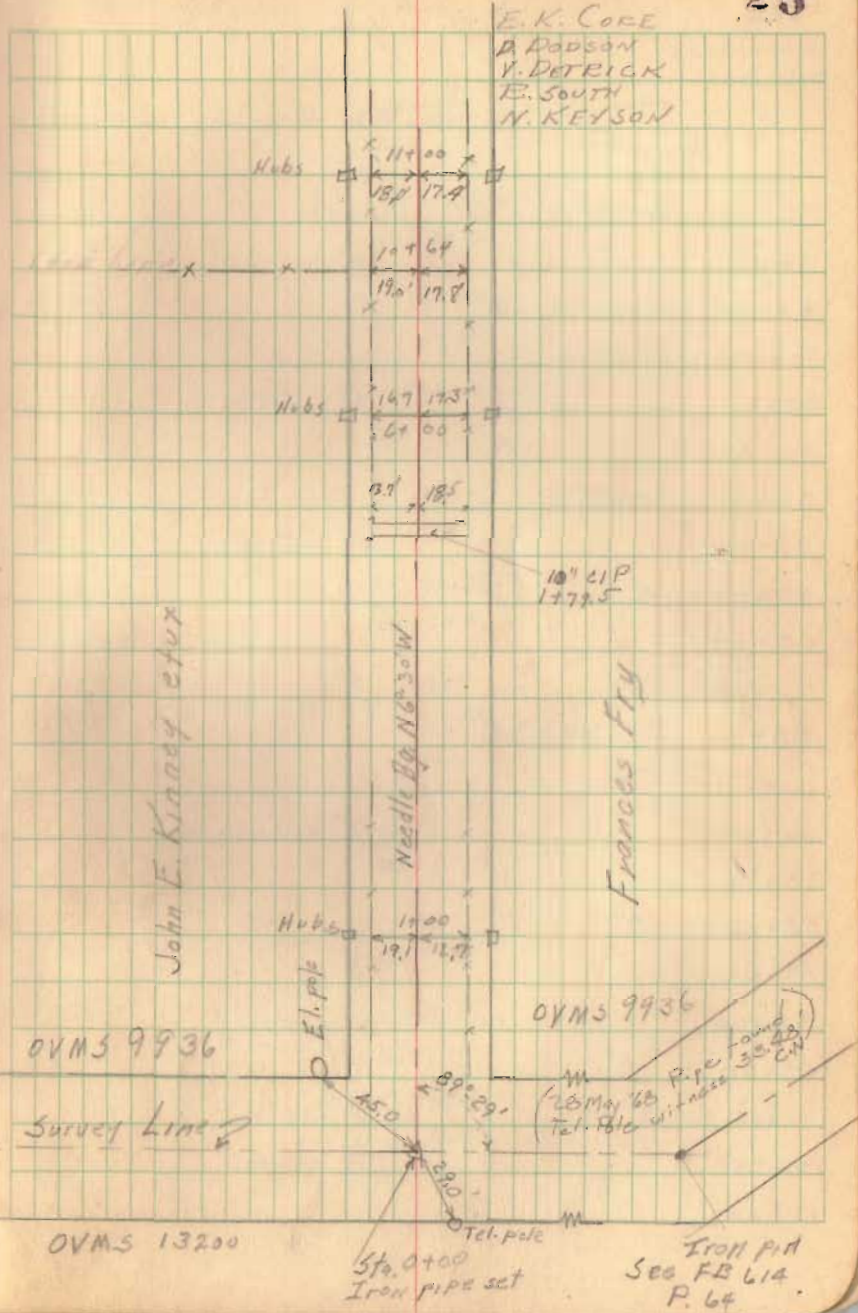 E. K. CORE
D. DODSON
V. DETRICK
E. SOUTH
N. KEYSON
Hubs
11+00
18.0' 17.4
10+64
19.0' 17.8'
Hubs
16.7 17.3
6+00
13.7 18.5
10" CIP
1+79.5
John E. Kinney etux
Needle Bg. N6°30'W
Frances Fry
Hubs
1+00
19.1 12.7
El. pole
OVMS 9936
OVMS 9936
(28 May '68 Pipe found
Tel. Pole witness 33.48' GN)
89°-29'
45.0
Survey Line
29.0'
Tel. pole
OVMS 13200
Sta. 0+00
Iron pipe set
Iron pin
See FB 614
P. 64